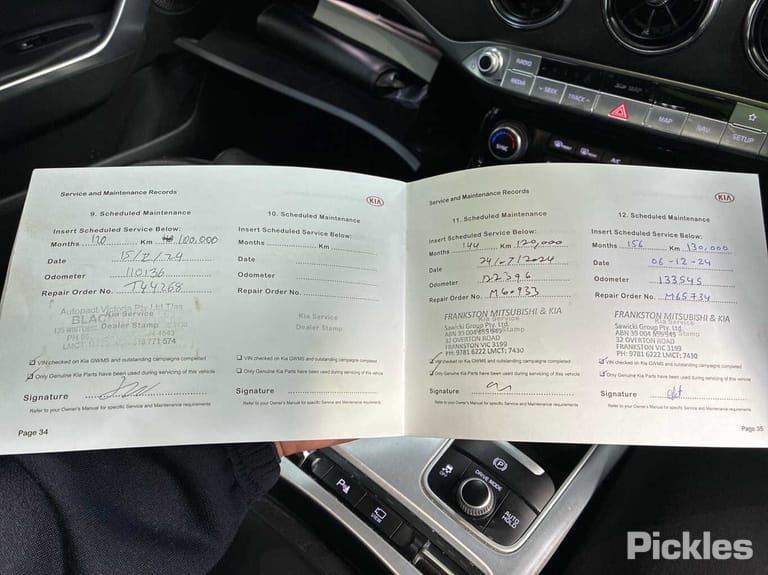 RADIO
MEDIA
SEEK
TRACK
MAP
NAV
SETUP
SYNC
Service and Maintenance Records
KIA
9. Scheduled Maintenance
Insert Scheduled Service Below:
Months 120 Km 100,000
Date
Odometer 110136
Repair Order No. T44268
Autopact Victoria Pty Ltd T/as
Kia Service
Dealer Stamp
VIN checked on Kia GWMS and outstanding campaigns completed
Only Genuine Kia Parts have been used during servicing of this vehicle
Signature
Refer to your Owner's Manual for specific Service and Maintenance requirements
Page 34
10. Scheduled Maintenance
Insert Scheduled Service Below:
Months Km
Date
Odometer
Repair Order No.
Kia Service
Dealer Stamp
VIN checked on Kia GWMS and outstanding campaigns completed
Only Genuine Kia Parts have been used during servicing of this vehicle
Signature
Refer to your Owner's Manual for specific Service and Maintenance requirements
Service and Maintenance Records
KIA
11. Scheduled Maintenance
Insert Scheduled Service Below:
Months 144 Km 120,000
Date 24/07/2024
Odometer 122396
Repair Order No. M60933
FRANKSTON MITSUBISHI & KIA
Kia Service
Sawicki Group Pty. Ltd.
Dealer Stamp
32 OVERTON ROAD
FRANKSTON VIC 3199
PH: 9781 6222 LMCT: 7430
VIN checked on Kia GWMS and outstanding campaigns completed
Only Genuine Kia Parts have been used during servicing of this vehicle
Signature
Refer to your Owner's Manual for specific Service and Maintenance requirements
12. Scheduled Maintenance
Insert Scheduled Service Below:
Months 156 Km 130,000
Date 06-12-24
Odometer 133545
Repair Order No. M65734
FRANKSTON MITSUBISHI & KIA
Kia Service
Sawicki Group Pty. Ltd.
Dealer Stamp
32 OVERTON ROAD
FRANKSTON VIC 3199
PH: 9781 6222 LMCT: 7430
VIN checked on Kia GWMS and outstanding campaigns completed
Only Genuine Kia Parts have been used during servicing of this vehicle
Signature
Refer to your Owner's Manual for specific Service and Maintenance requirements
Page 35
OFF
P
DRIVE MODE
AUTO HOLD
P
VIEW
Pickles